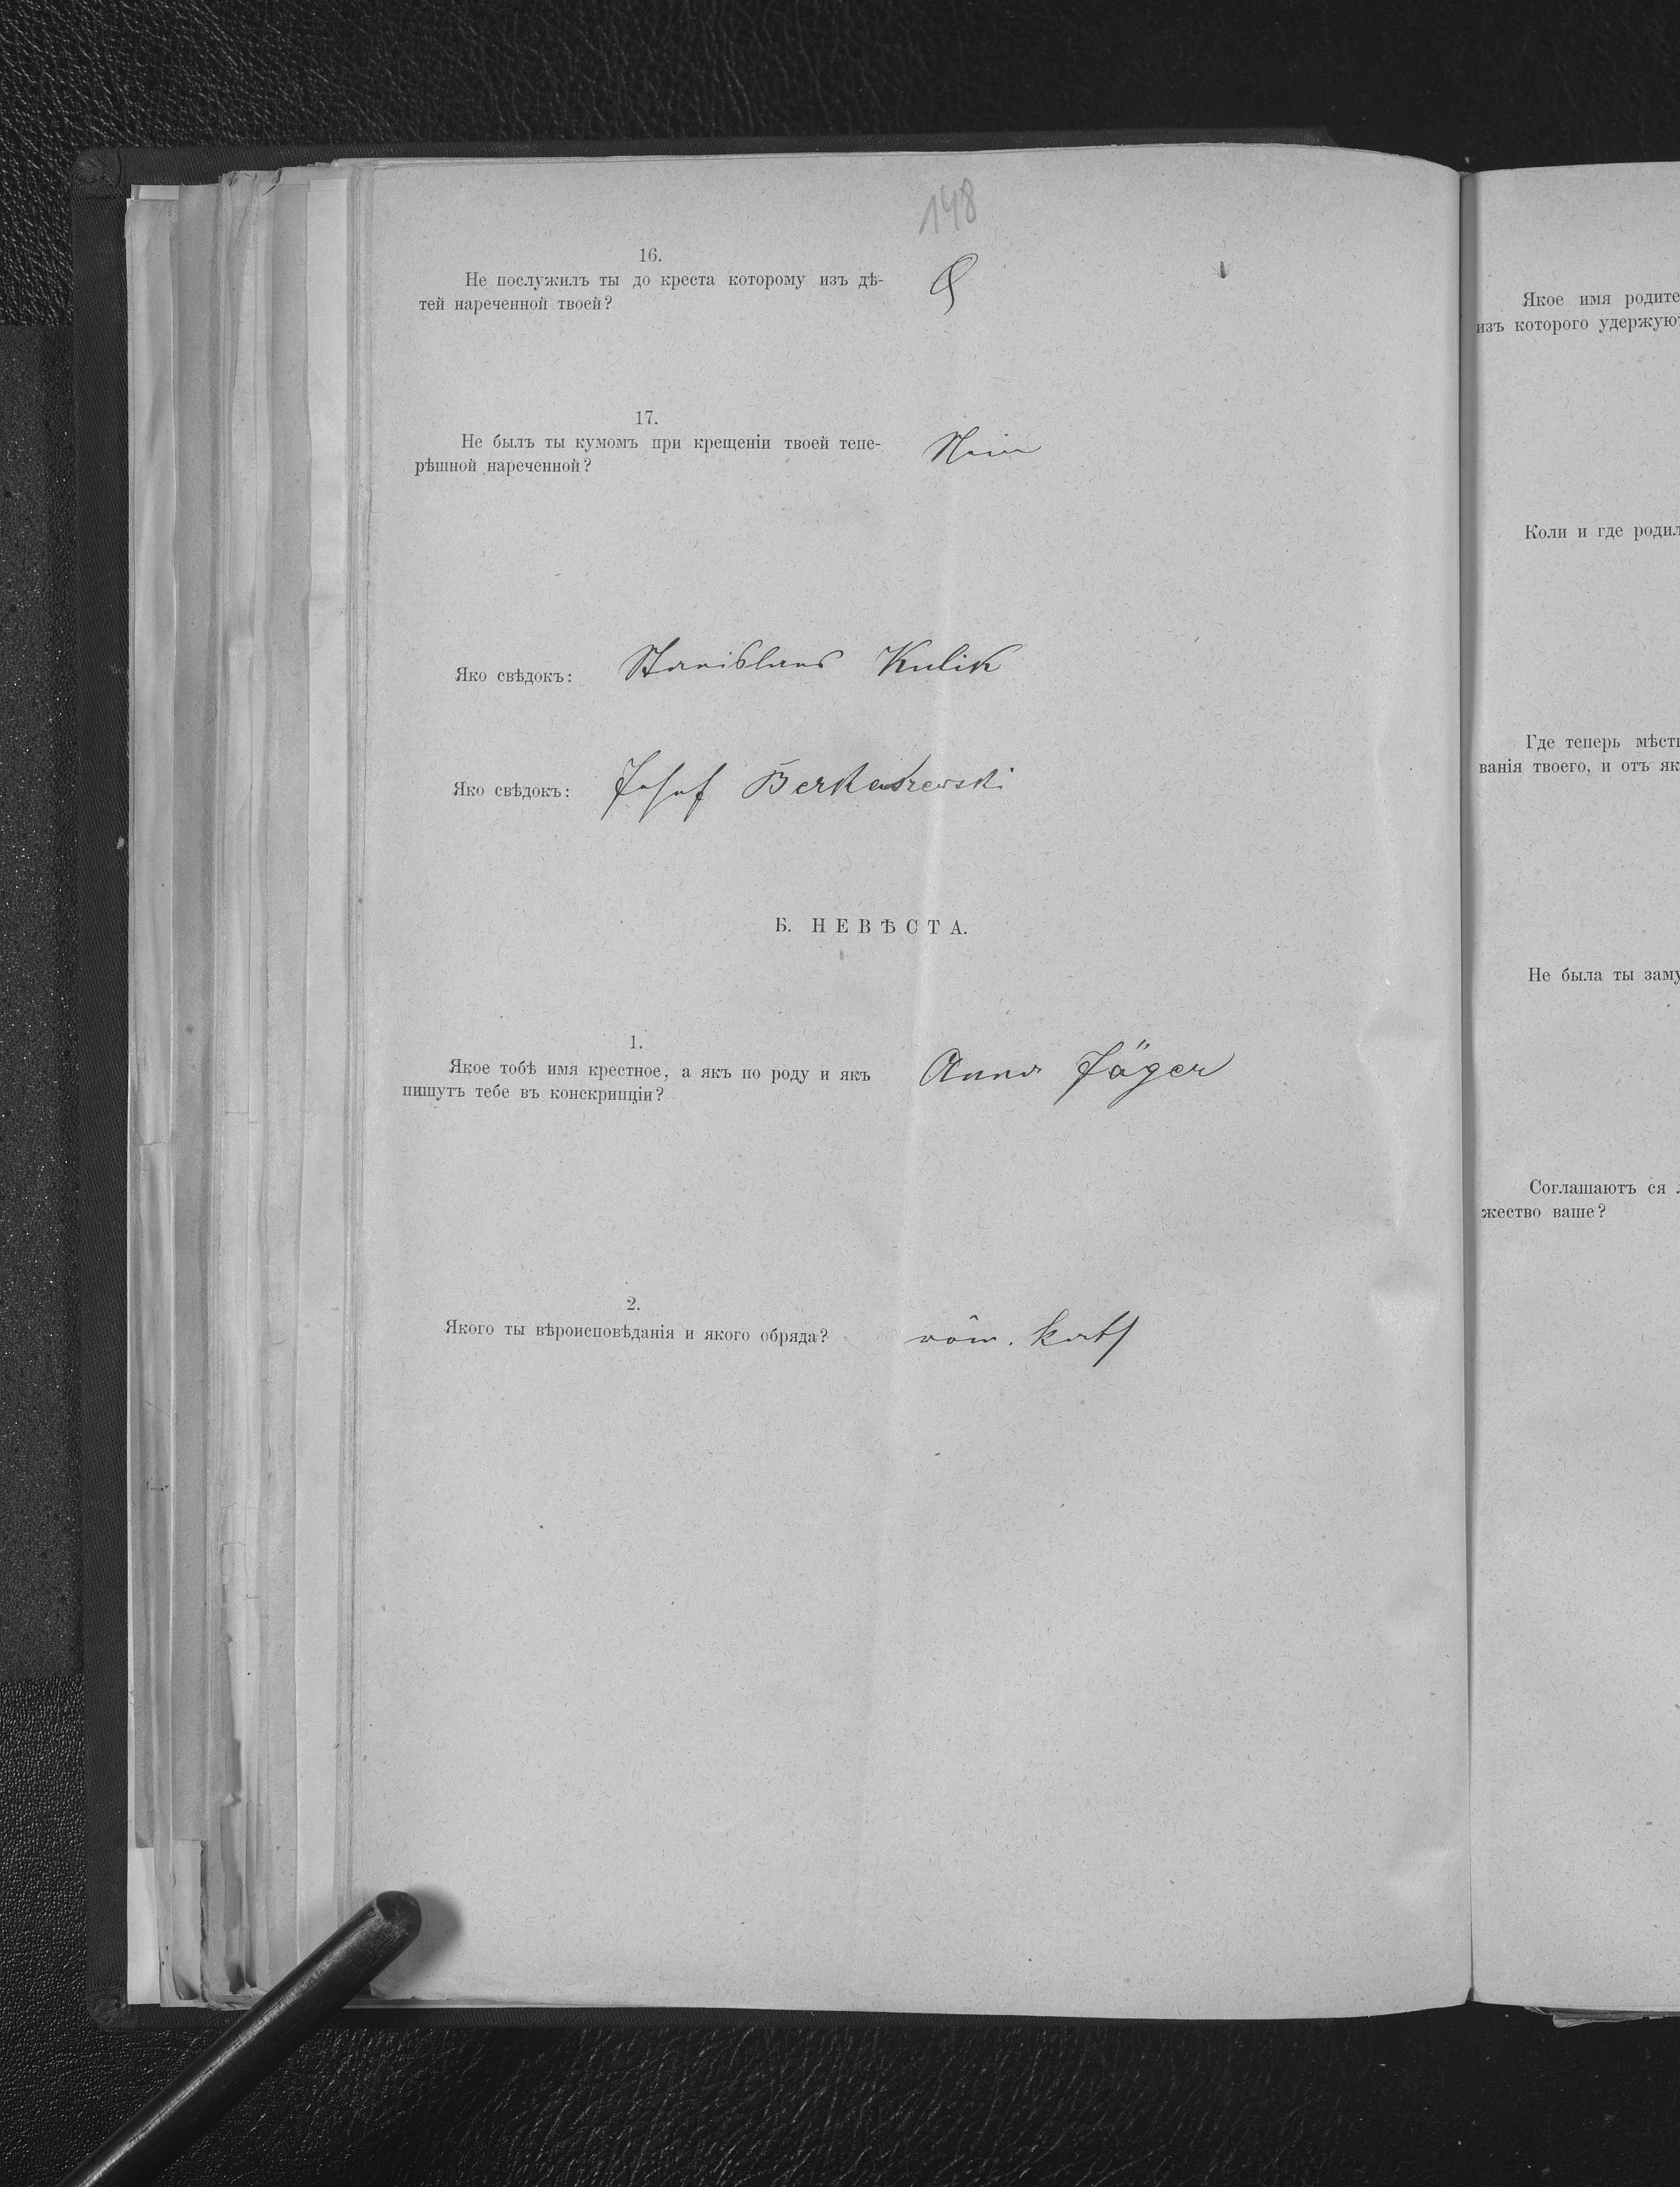 148
16.
Не послужилъ ты до креста которому изъ дѣ-
тей нареченной твоей?
17.
Не былъ ты кумомъ при крещеніи твоей тепе-
рѣшной нареченной?
Nein
Яко свѣдокъ:
Stanislaus Kulik
Яко свѣдокъ:
Josef Berkaszewski
Б. НЕВѢСТА.
1.
Якое тобѣ имя крестное, а якъ по роду и якъ
пишутъ тебе въ конскрипціи?
Anna Jäger
2.
Якого ты вѣроисповѣданія и якого обряда?
röm. kath
Якое имя родите
изъ которого удержую
Коли и где родил
Где теперь мѣст
ванія твоего, и отъ як
Не была ты заму
Соглашаютъ ся
жество ваше?